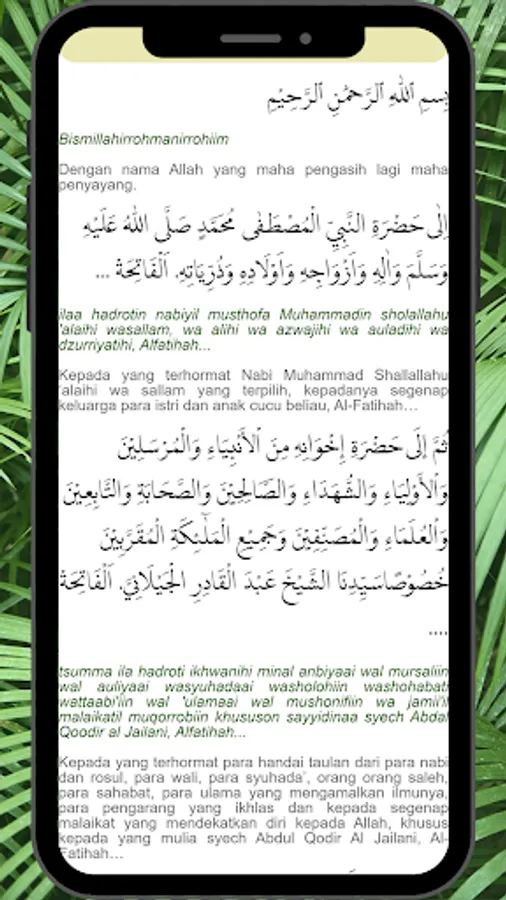 بِسْمِ ٱللَّهِ ٱلرَّحْمَٰنِ ٱلرَّحِيْمِ
Bismillahirrohmanirrohiim
Dengan nama Allah yang maha pengasih lagi maha
penyayang.
اِلٰى حَضْرَةِ النَّبِيِّ الْمُصْطَفٰى مُحَمَّدٍ صَلَّى اللهُ عَلَيْهِ
وَسَلَّمَ وَاٰلِهِ وَاَزْوَاجِهِ وَاَوْلَادِهِ وَذُرِّيَاتِهِ. اَلْفَاتِحَةْ ...
ilaa hadrotin nabiyil musthofa Muhammadin sholallahu
'alaihi wasallam, wa alihi wa azwajihi wa auladihi wa
dzurriyatihi, Alfatihah...
Kepada yang terhormat Nabi Muhammad Shallallahu
'alaihi wa sallam yang terpilih, kepadanya segenap
keluarga para istri dan anak cucu beliau, Al-Fatihah…
ثُمَّ إِلَى حَضْرَةِ إِخْوَانِهِ مِنَ الْأَنْبِيَاءِ وَالْمُرْسَلِيْنَ
وَالْأَوْلِيَاءِ وَالشُّهَدَاءِ وَالصَّالِحِيْنَ وَالصَّحَابَةِ وَالتَّابِعِيْنَ
وَالْعُلَمَاءِ وَالْمُصَنِّفِيْنَ وَجَمِيْعِ الْمَلٰٓئِكَةِ الْمُقَرَّبِيْنَ
خُصُوْصًاسَيِّدِنَا الشَّيْخَ عَبْدَ الْقَادِرِ الْجَيْلَانِيِّ. اَلْفَاتِحَةْ
....
tsumma ila hadroti ikhwanihi minal anbiyaai wal mursaliin
wal auliyaai wasyuhadaai washolohiin washohabati
wattaabi'iin wal 'ulamaai wal mushonifiin wa jamii'il
malaikatil muqorrobiin khususon sayyidinaa syech Abdal
Qoodir al Jailani, Alfatihah...
Kepada yang terhormat para handai taulan dari para nabi
dan rosul, para wali, para syuhada', orang orang saleh,
para sahabat, para ulama yang mengamalkan ilmunya,
para pengarang yang ikhlas dan kepada segenap
malaikat yang mendekatkan diri kepada Allah, khusus
kepada yang mulia syech Abdul Qodir Al Jailani, Al-
Fatihah…